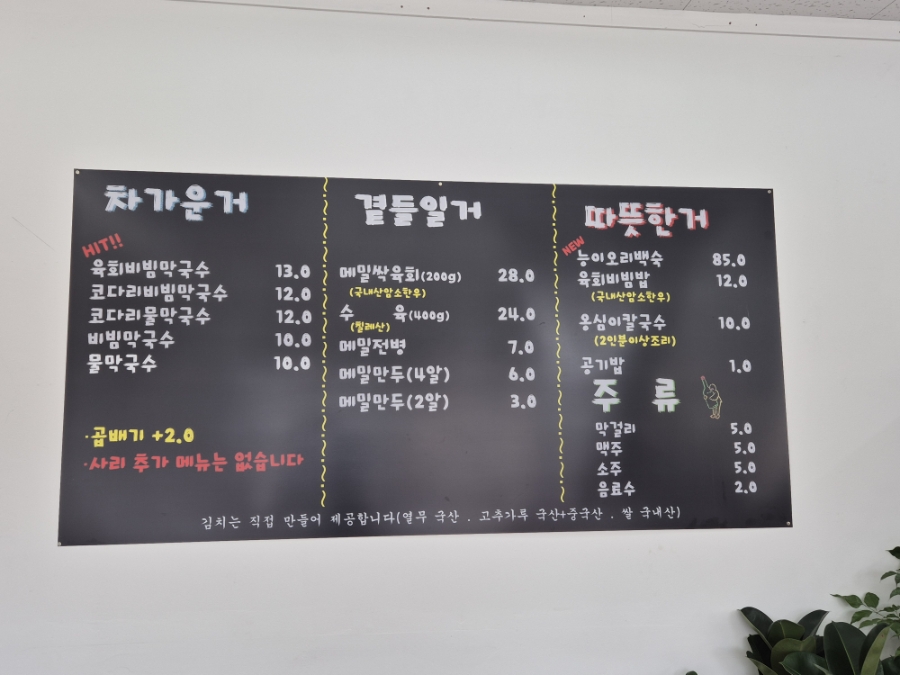 차가운거
HIT!!
육회비빔막국수 13.0
코다리비빔막국수 12.0
코다리물막국수 12.0
비빔막국수 10.0
물막국수 10.0
·곱배기 +2.0
·사리 추가 메뉴는 없습니다
곁들일거
메밀싹육회(200g) 28.0
(국내산암소한우)
수 육(400g) 24.0
(칠레산)
메밀전병 7.0
메밀만두(4알) 6.0
메밀만두(2알) 3.0
따뜻한거
NEW
능이오리백숙 85.0
육회비빔밥 12.0
(국내산암소한우)
옹심이칼국수 10.0
(2인분이상조리)
공기밥 1.0
주 류
막걸리 5.0
맥주 5.0
소주 5.0
음료수 2.0
김치는 직접 만들어 제공합니다(열무 국산 . 고추가루 국산+중국산 . 쌀 국내산)